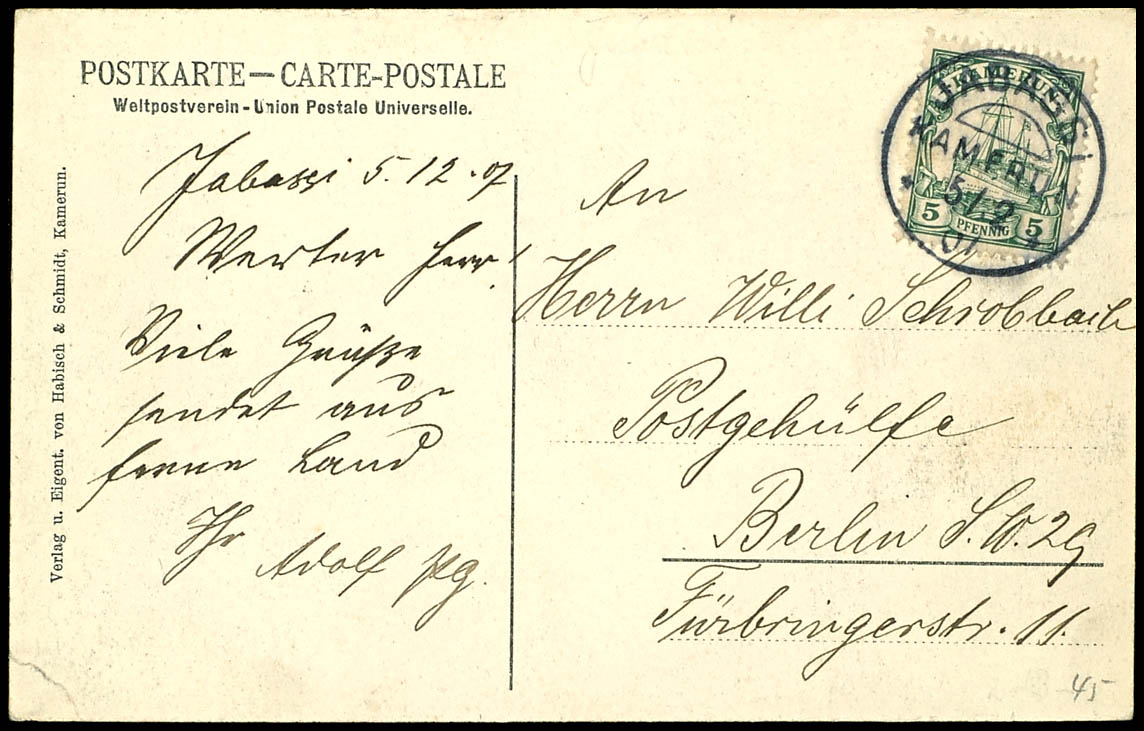 POSTKARTE — CARTE-POSTALE
Weltpostverein - Union Postale Universelle.
Verlag u. Eigent. von Habisch & Schmidt, Kamerun.
Jabassi 5.12.07
Werter Herr!
Viele Grüße
sendet aus
ferne Land
Ihr
Adolf
An
Herrn Willi Schrobbach
Postgehülfe
Berlin S.W. 29
Fürbringerstr. 11.
KAMERUN
5 PFENNIG 5
JABASSI
KAMERUN
5/12
07
45